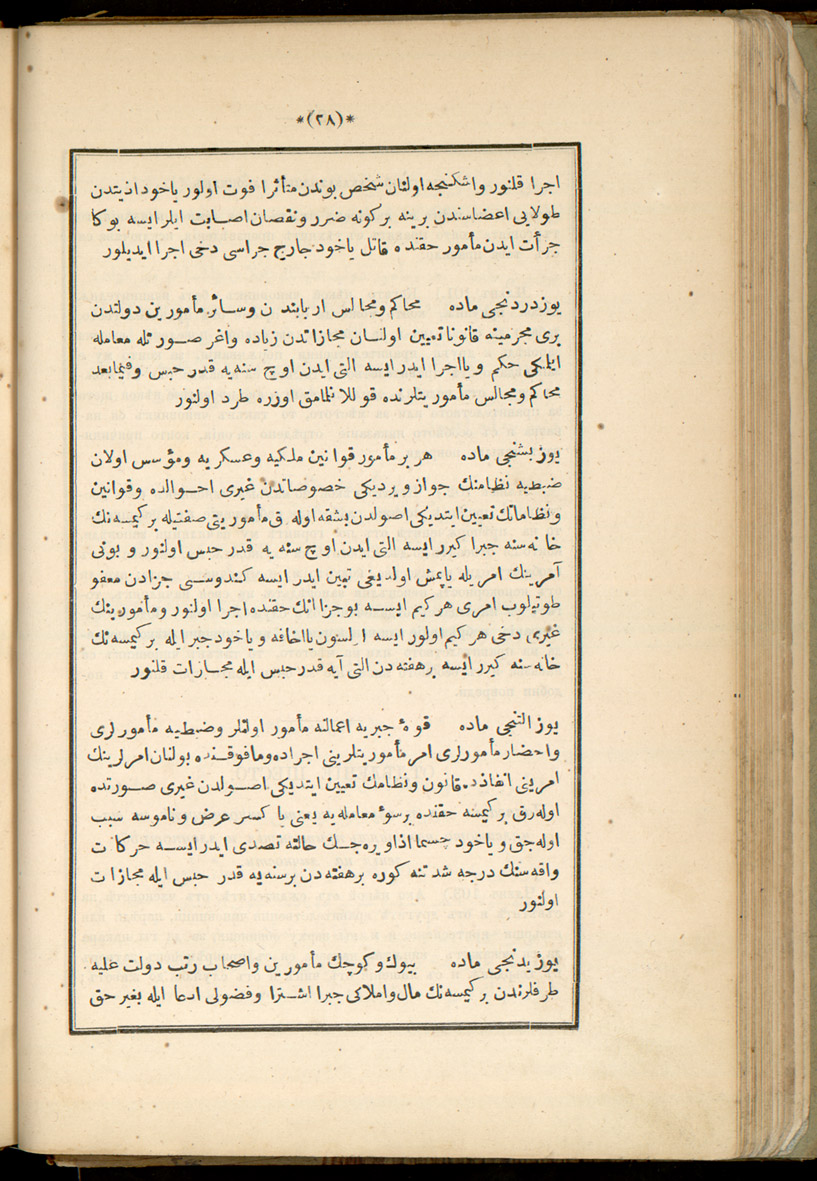 *(٢٨)*
اجرا قلنور واشكنجه اولنان شخص بوندن متأثرا فوت اولور ياخود اذيتدن
طولايى اعضاسندن برينه بركونه ضرر ونقصان اصابت ايلر ايسه بوكا
جرأت ايدن مأمور حقنده قاتل ياخود جارح جزاسى دخى اجرا ايديلور
يوزدردنجى ماده محاكم ومجالس اربابندن وسائر مأمورين دولتدن
برى مجرمينه قانونا تعيين اولنان مجازاتدن زياده واغر صورتله معامله
ايلمكى حكم ويا اجرا ايدر ايسه التى ايدن اوچ سنه يه قدر حبس وفيمابعد
محاكم ومجالس مأموريتلرنده قوللانلمامق اوزره طرد اولنور
يوز بشنجى ماده هر بر مأمور قوانين ملكيه وعسكريه ومؤسس اولان
ضبطيه نظامنك جواز ويرديكى خصوصاتدن غيرى احوالده وقوانين
ونظاماتك تعيين ايتديكى اصولدن بشقه اوله رق مأموريتى صفتيله بر كيمسه نك
خانه سنه جبرا كيرر ايسه التى ايدن اوچ سنه يه قدر حبس اولنور و بونى
آمرينك امريله ياپمش اولديغى تبين ايدر ايسه كندوسى جزادن معفو
طوتيلوب امرى هر كيم ايسه بو جزا انك حقنده اجرا اولنور ومأمورينك
غيرى دخى هر كيم اولور ايسه اولسون يا اخافه و ياخود جبر ايله بر كيمسه نك
خانه سنه كيرر ايسه برهفته دن التى آيه قدر حبس ايله مجازات قلنور
يوز التنجى ماده قوۀ جبريه اعمالنه مأمور اولنلر وضبطيه مأمورلرى
واحضار مأمورلرى امر مأموريتلرينى اجراده ومافوقنده بولنان امرلرينك
امرينى انفاذده قانون ونظامك تعيين ايتديكى اصولدن غيرى صورتده
اوله رق بر كيمسه حقنده برسوء معامله يه يعنى يا كسر عرض وناموسه سبب
اوله جق و ياخود جسما اذا ويره جك حالته تصدى ايدر ايسه حركات
واقعه سنك درجه شدتنه كوره برهفته دن برسنه يه قدر حبس ايله مجازات
اولنور
يوز يدنجى ماده بيوك وكوچك مأمورين واصحاب رتب دولت عليه
طرفلرندن بر كيمسه نك مال واملاكى جبرا اشترا وفضولى ادعا ايله بغير حق